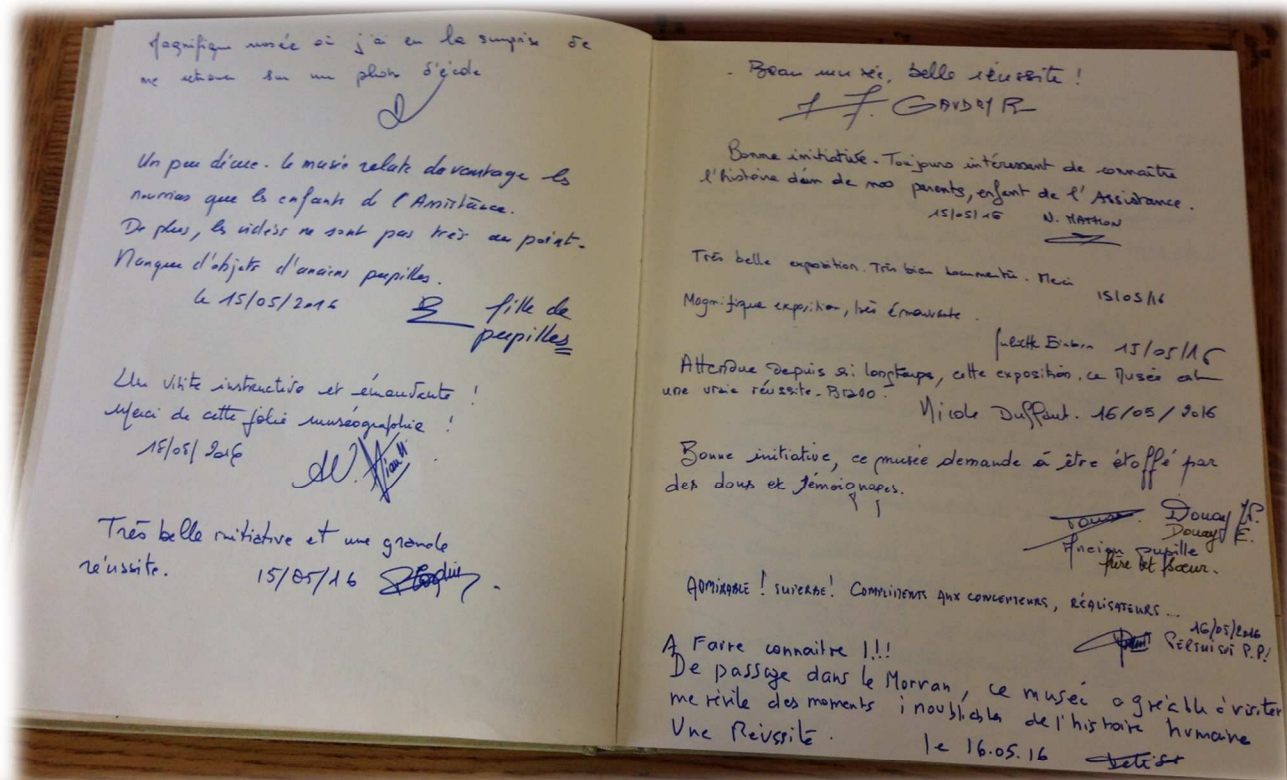 Magnifique musée où j'ai eu la surprise de
me retrouver sur une photo d'école
Un peu déçue. Le musée relate davantage les
nourrices que les enfants de l'Assistance.
De plus, les vidéos ne sont pas très au point.
Manque d'objets d'anciens pupilles.
le 15/05/2016
fille de
pupilles
Un visite instructive et émouvante !
Merci de cette jolie muséographie !
15/05/2016
Très belle initiative et une grande
réussite. 15/05/16
. Beau musée, belle réussite !
Bonne initiative. Toujours intéressant de connaître
l'histoire d'un de nos parents, enfant de l'Assistance.
15/05/16 N. MATHON
Très belle exposition. Très bien documentée. Merci
15/05/16
Magnifique exposition, très émouvante.
Juliette 15/05/16
Attendue depuis si longtemps, cette exposition, ce Musée est
une vraie réussite. BRAVO.
Nicole Duffaut. 16/05/2016
Bonne initiative, ce musée demande à être étoffé par
des dons et témoignages.
Douay J.P.
Douay E.
Ancien pupille
frère et soeur.
ADMIRABLE ! SUPERBE ! COMPLIMENTS AUX CONCEPTEURS, RÉALISATEURS ...
16/05/2016
P.P.
A Faire connaitre !!!
De passage dans le Morvan, ce musée agréable à visiter
me révile des moments inoubliables de l'histoire humaine
Une Réussite. le 16.05.16